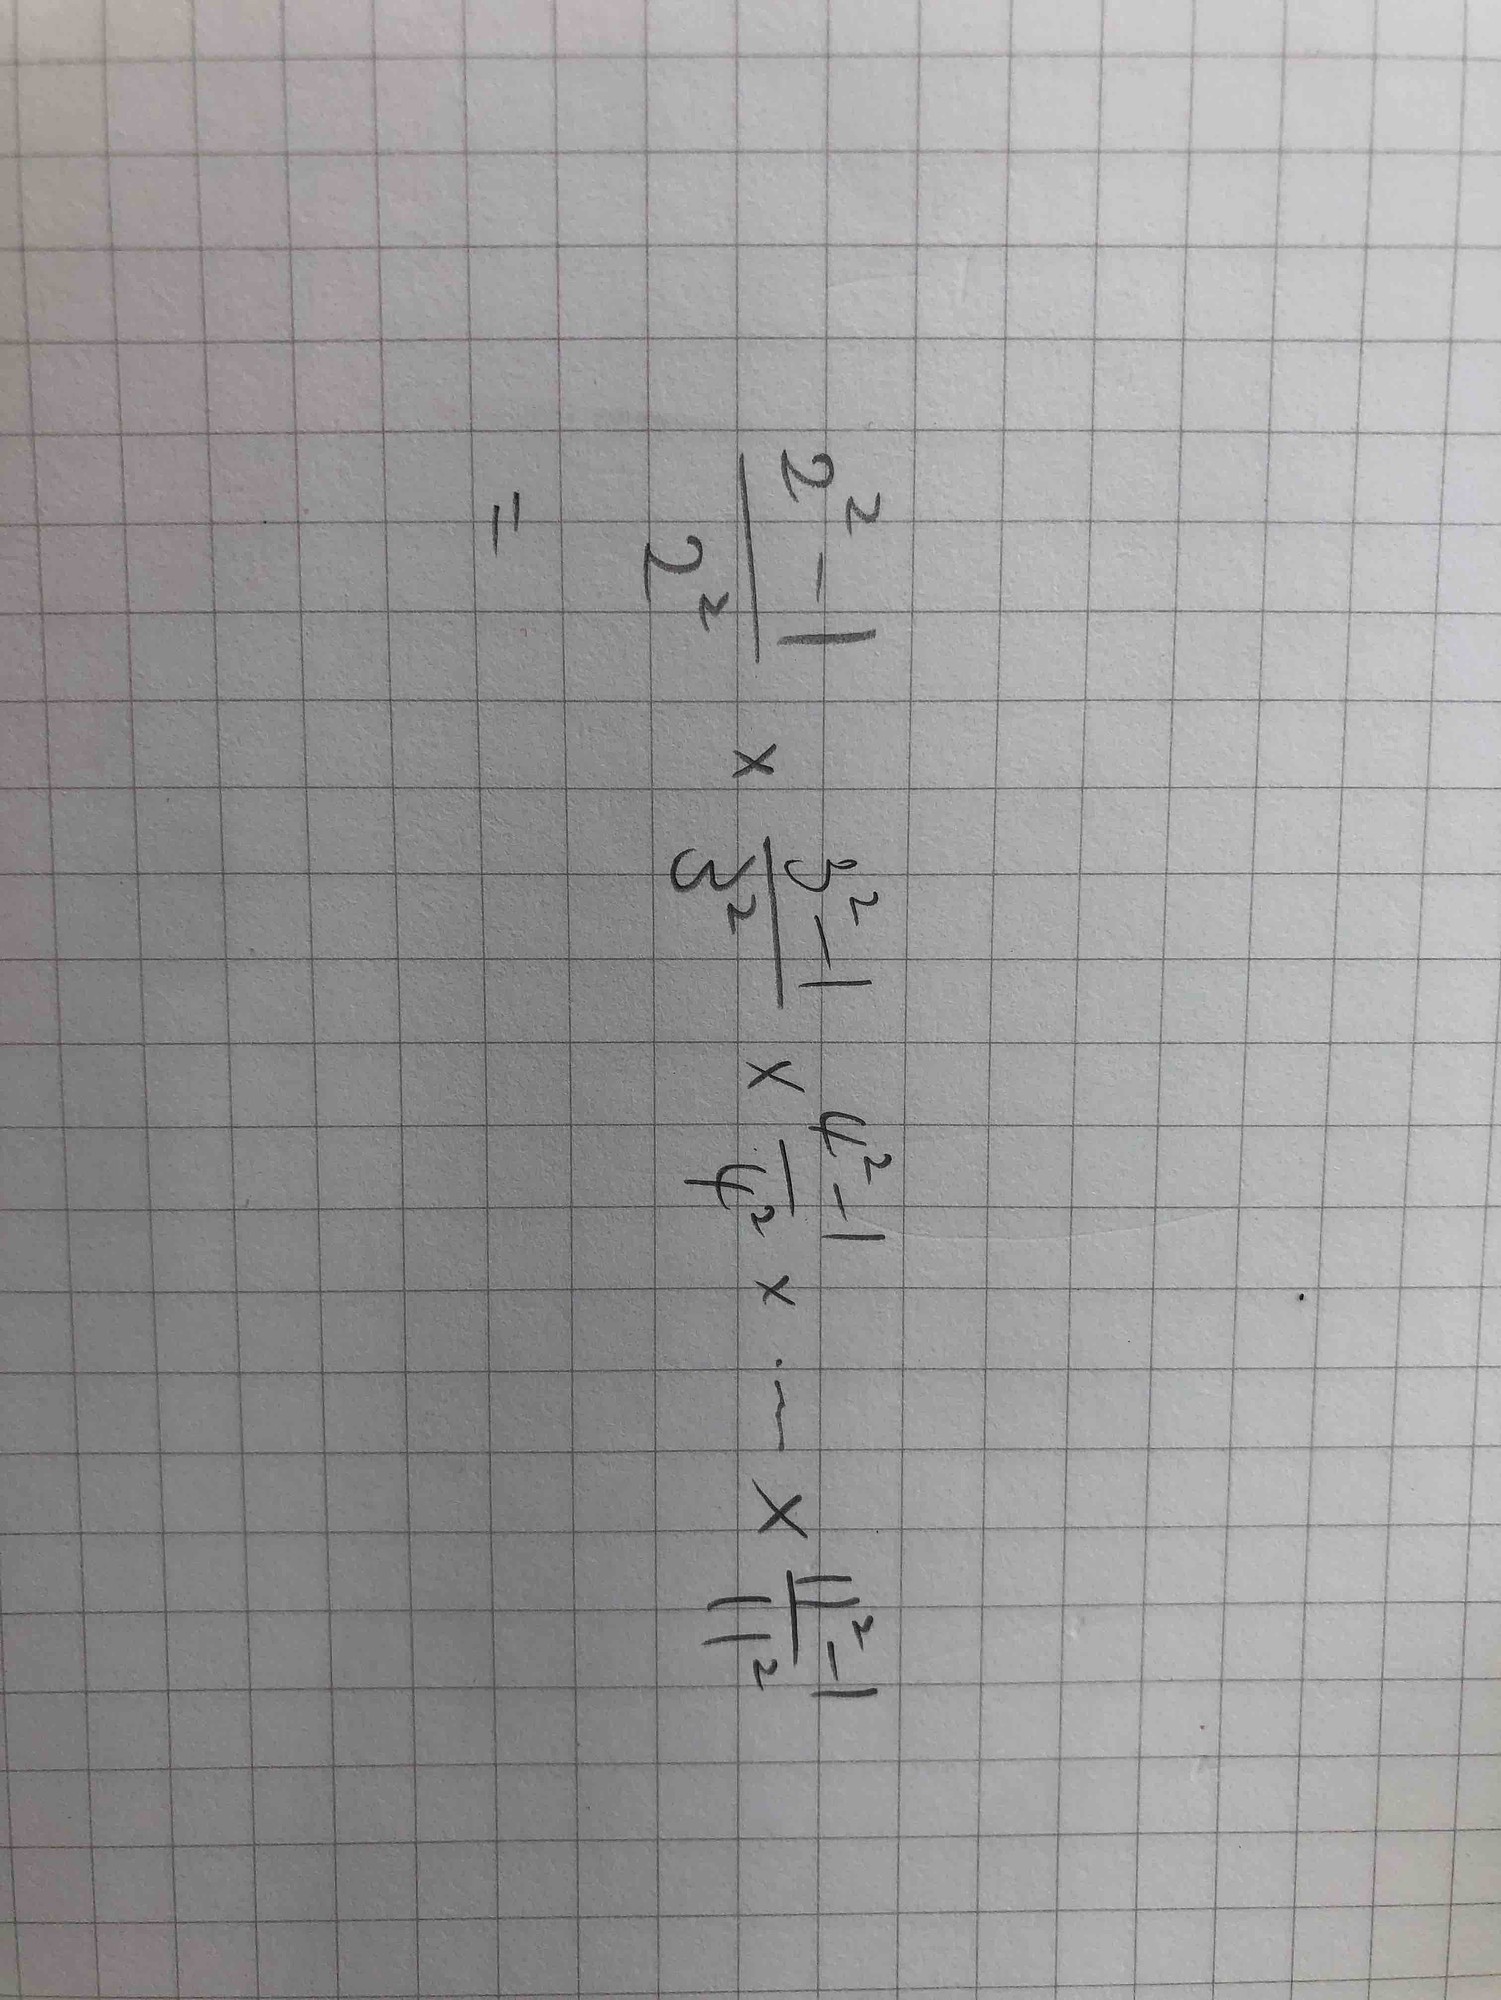 2² - 1 / 2² × 3² - 1 / 3² × 4² - 1 / 4² × ... × 11² - 1 / 11²
=